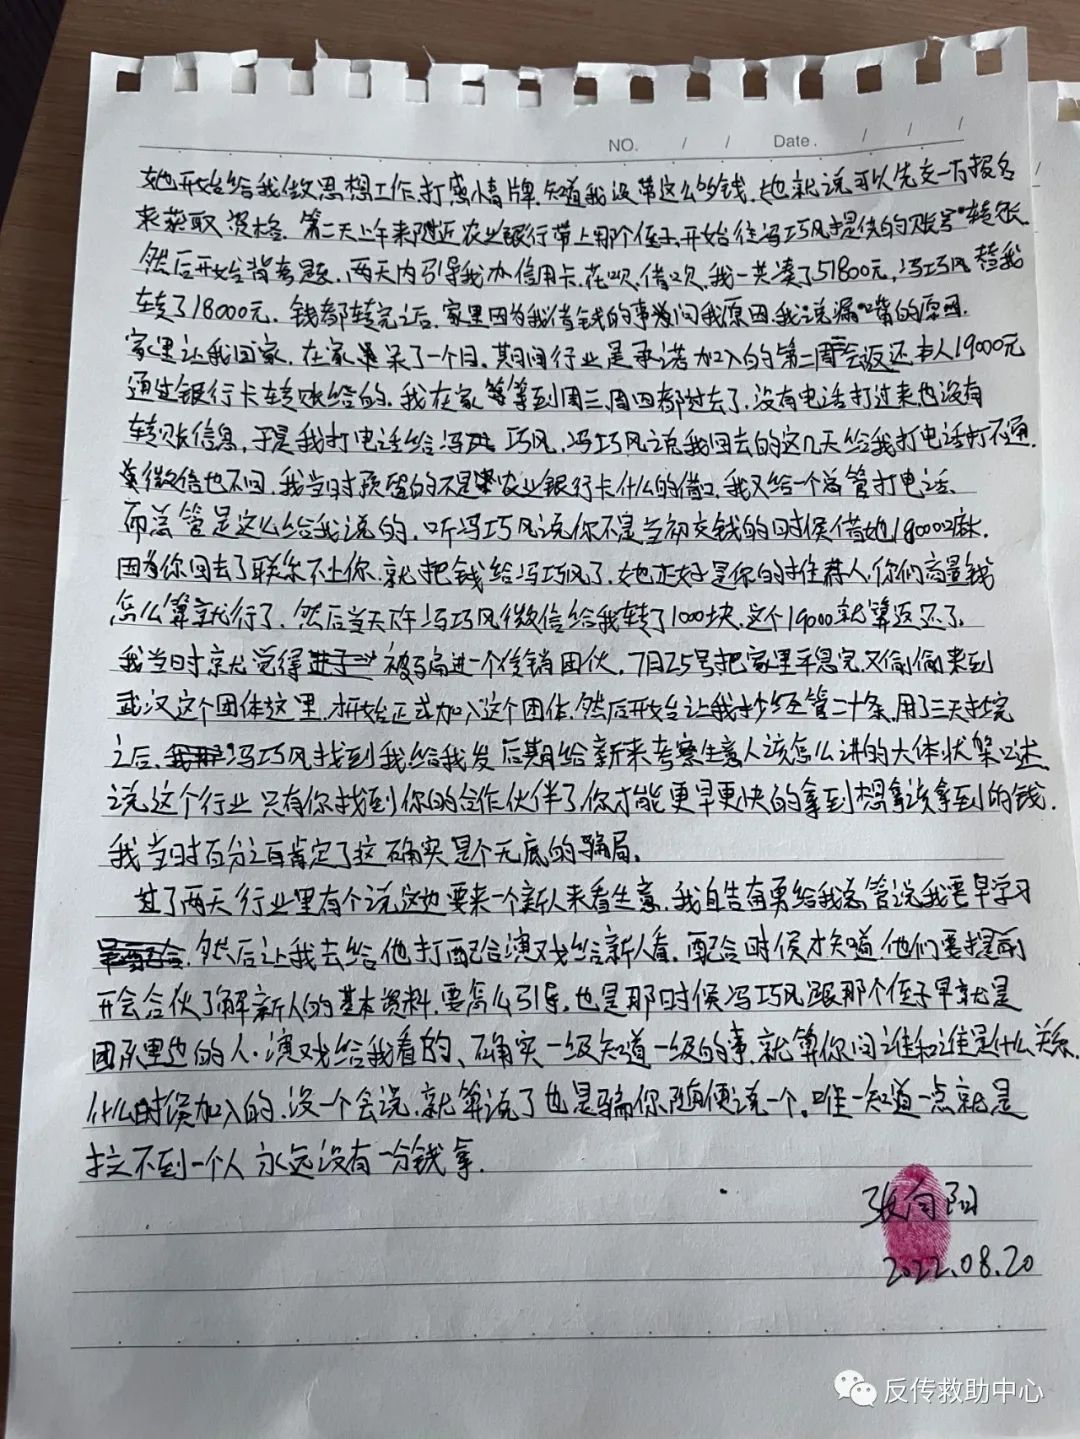 NO. / / Date. / / /
她开始给我做思想工作,打感情牌.知道我没带这么多钱,她就说可以先交一万报名
来获取资格.第二天上午来附近农业银行带上那个侄子,开始往冯巧风提供的账号转账
然后开始背考题.两天内引导我办信用卡,花呗,借呗,我一共凑了51800元,冯巧风替我
转了18000元.钱都转完之后.家里因为我借钱的事发问我原因,我说漏嘴的原因.
家里让我回家.在家呆了一个月.其间行业是承诺加入的第二周会返还本人19000元
通过银行卡转账给的.我在家等等到周三,周四都过去了.没有电话打过来也没有
转账信息,于是我打电话给冯巧风,冯巧风说我回去的这几天给我打电话打不通.
微信也不回,我当时预留的不是农业银行卡什么的借口.我又给一个高管打电话.
而高管是这么给我说的,听冯巧风说你不是当初交钱的时候借她18000口麻.
因为你回去了联系不上你.就把钱给冯巧风了.她正好是你的推荐人.你们商量钱
怎么算就行了.然后当天下午冯巧风微信给我转了1000块.这个19000就算返还了.
我当时就觉得被骗进一个传销团伙.7月25号把家里平息完.又偷偷来到
武汉这个团体这里.才开始正式加入这个团体.然后开始让我抄经管二十条.用了三天抄完
之后.冯巧风找到我给我发后期给新来考察生意人该怎么讲的大体状架口述.
说这个行业只有你找到你的合作伙伴了你才能更早更快的拿到想拿该拿到的钱.
我当时百分之百肯定了这确实是个无底的骗局.
过了两天行业里有个说这边要来一个新人来看生意.我自告奋勇给我高管说我要早学习
然后让我去给他打配合演戏给新人看.配合时候才知道他们要提前
开会合伙了解新人的基本资料.要怎么引导.也是那时候冯巧风跟那个侄子早就是
团队里边的人.演戏给我看的、确实一级知道一级的事.就算你问谁和谁是什么关系.
什么时候加入的.没一个会说.就算说了也是骗你随便说一个.唯一知道一点就是
拉不到一个人永远没有一分钱拿.
张向阳
2022.08.20
反传救助中心